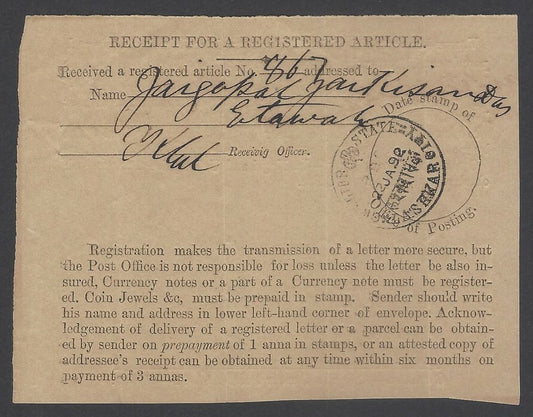 RECEIPT FOR A REGISTERED ARTICLE.
Received a registered article No. 867 addressed to
Name Jaigopal Jankisandas
Etawah
Date stamp of
Receivig Officer.
STATE
of Posting.
Registration makes the transmission of a letter more secure, but
the Post Office is not responsible for loss unless the letter be also in-
sured, Currency notes or a part of a Currency note must be register-
ed. Coin Jewels &c, must be prepaid in stamp. Sender should write
his name and address in lower left-hand corner of envelope. Acknow-
ledgement of delivery of a registered letter or a parcel can be obtain-
ed by sender on prepayment of 1 anna in stamps, or an attested copy of
addressee's receipt can be obtained at any time within six months on
payment of 3 annas.